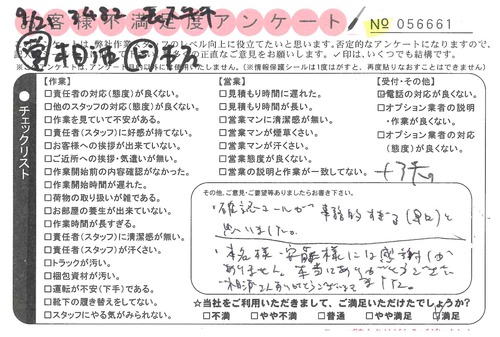 お客様不満足度アンケート
№ 056661
(営)相酒
チェックリスト
【作業】
□責任者の対応(態度)が良くない。
□他のスタッフの対応(態度)が良くない。
□作業を見ていて不安がある。
□責任者(スタッフ)に好感が持てない。
□お客様への挨拶が出来ていない。
□ご近所への挨拶・気遣いが無い。
□作業開始前の内容確認がなかった。
□作業開始時間が遅れた。
□荷物の取り扱いが雑である。
□お部屋の養生が出来ていない。
□作業時間が長すぎる。
□責任者(スタッフ)に清潔感が無い。
□責任者(スタッフ)が汗くさい。
□トラックが汚い。
□梱包資材が汚い。
□運転が不安(下手)である。
□靴下の履き替えをしてない。
□スタッフにやる気がみられない。
【営業】
□見積もり時間に遅れた。
□見積もり時間が長い。
□営業マンに清潔感が無い。
□営業マンが煙草くさい。
□営業マンが汗くさい。
□営業態度が良くない。
□営業の説明と作業が一致してない。
【受付・その他】
□電話の対応が良くない。
□オプション業者の説明
・作業が良くない。
□オプション業者の対応
(態度)が良くない。
その他、ご意見・ご要望等ありましたらお書き下さい。
・確認コールが事務的すぎる
と思いました。
ありません。本当にありがとうございました。
☆当社をご利用いただきまして、ご満足いただけたでしょうか?
□不満 □やや不満 □普通 □やや満足 □満足